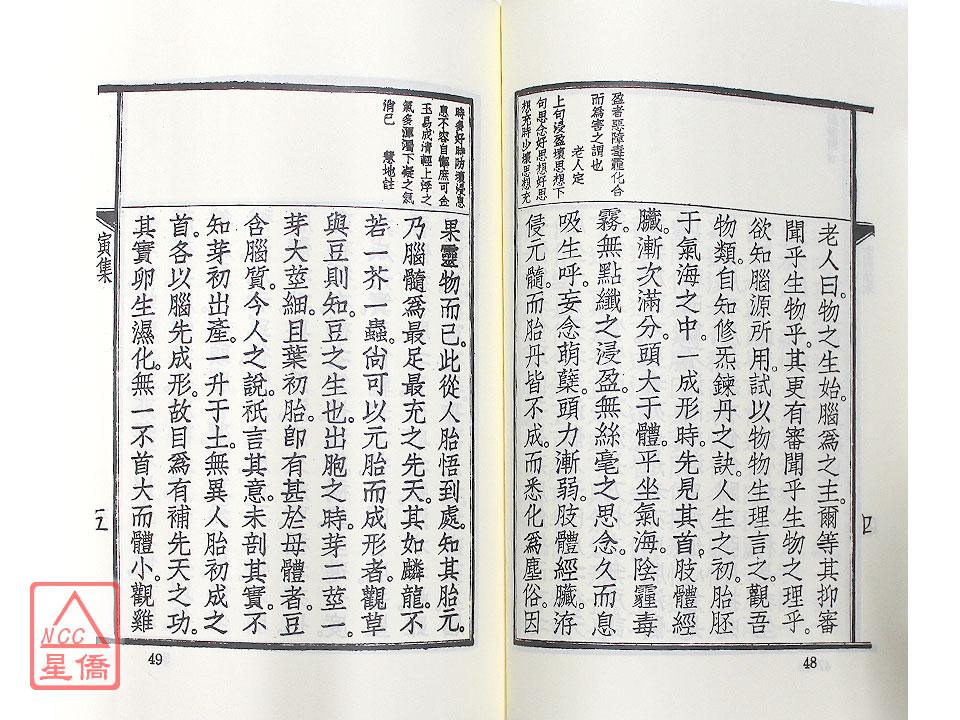 盈者惡障毒霾化合
而為害之謂也
老人定
上句浸盈壞思想下
句思念好思想好思
想充時少壞思想充
老人曰。物之生始。腦為之主。爾等其抑審
聞乎生物乎。其更有審聞乎生物之理乎。
欲知腦源所用。試以物物生理言之。觀吾
物類。自知修炁鍊丹之訣。人生之初。胎胚
于氣海之中。一成形時。先見其首。肢體經
臟。漸次滿分。頭大于體。平坐氣海。陰霾毒
霧。無點纖之浸盈。無絲毫之思念。久而息
吸生呼。妄念萌蘖。頭力漸弱。肢體經臟。洊
侵元髓。而胎丹皆不成。而悉化為塵俗。因
48
時多好時防壞浸息
息不容自懈庶可金
玉易成清輕上浮之
氣多渾濁下凝之氣
消已 慧地註
果靈物而已。此從人胎悟到處。知其胎元。
乃腦髓為最足最充之先天。其如麟龍。不
若一芥一蟲。尚可以元胎而成形者。觀草
與豆則知。豆之生也。出胞之時。芽二莖一
芽大莖細。且葉初胎。即有甚於母體者。豆
含腦質。今人之說。祇言其意。未剖其實。不
知芽初出產。一升于土。無異人胎初成之
首。各以腦先成形。故目為有補先天之功。
其實卵生濕化。無一不首大而體小。觀雞
寅集
49
NCC
星僑